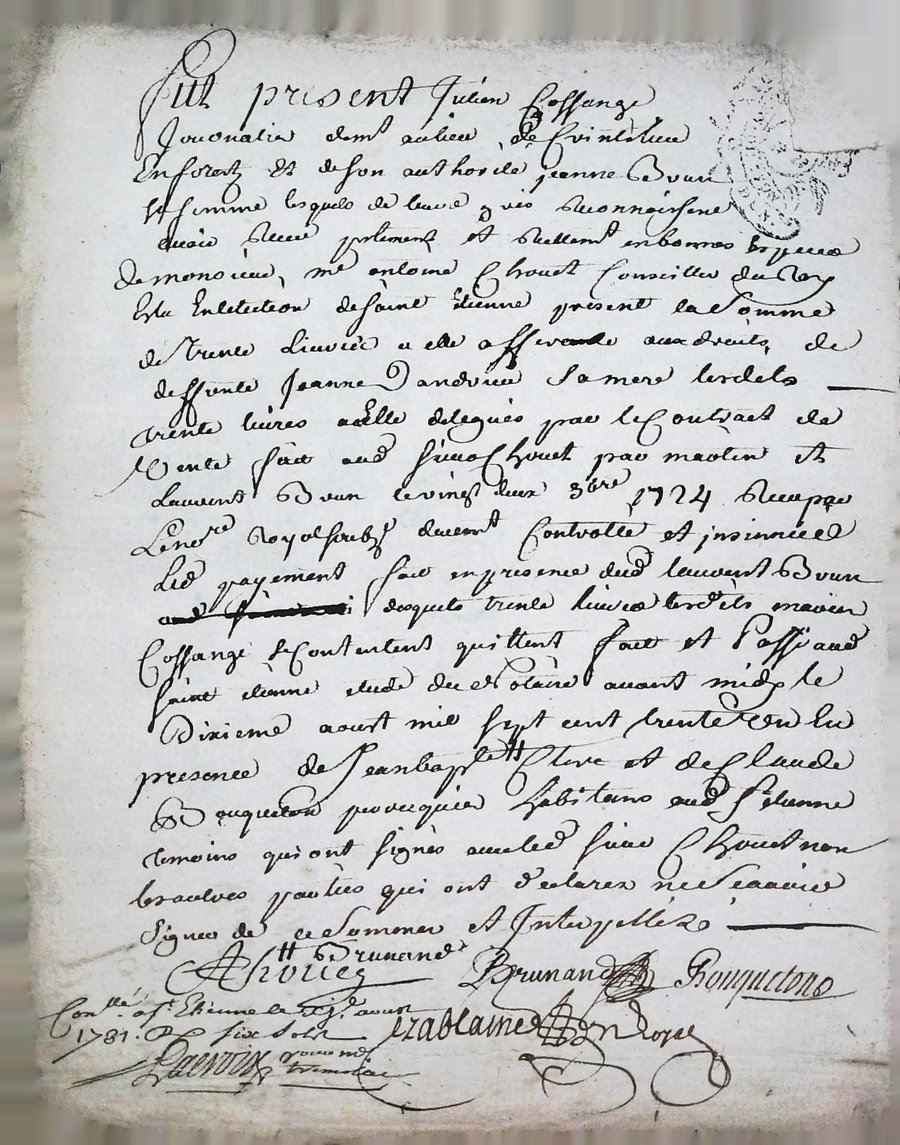 Fut present Julien Cossange
Journalie demt au lieu de
En forest Et de son authorité jeanne Brun
sa femme lesquels de leurs grés Reconnoissent
avoir Receu ptement et Reellemt en bonnes Especes
de monsieur, me antoine Chouet Conseiller du Roy
Esleu En lelection de saint Etienne present la somme
de trente Livres a elle afferante aux droits de
deffunte Jeanne sa mere lesdets
trente livres a Elle delegués par le Contract de
Vente fait aud sieur Chouet par martin et
Laurent Brun le vingt deux 3bre 1724 Receu par
Le nore Royal soubzé duemt Controllé et insinué
Led payement fait en presence dud laurent Brun
desquels trente livres lesdets mariés
Cossange se Contentent quittent fait et Passé aud
saint etienne etude du Notaire avant midy le
Dixieme aoust mil sept cent trente Un En
presence de Jean bapte Clerc et de Claude
Bouqueton perruquier habitans aud St etienne
temoins qui ont signés avec led sieur Chouet non
les autres parties qui ont declarez ne scavoir
signer de ce Sommes et Interpellés
Brunand
Chouet Brunand Bouqueton
Conllé a St Etienne le aoust
1731. Rx six sols